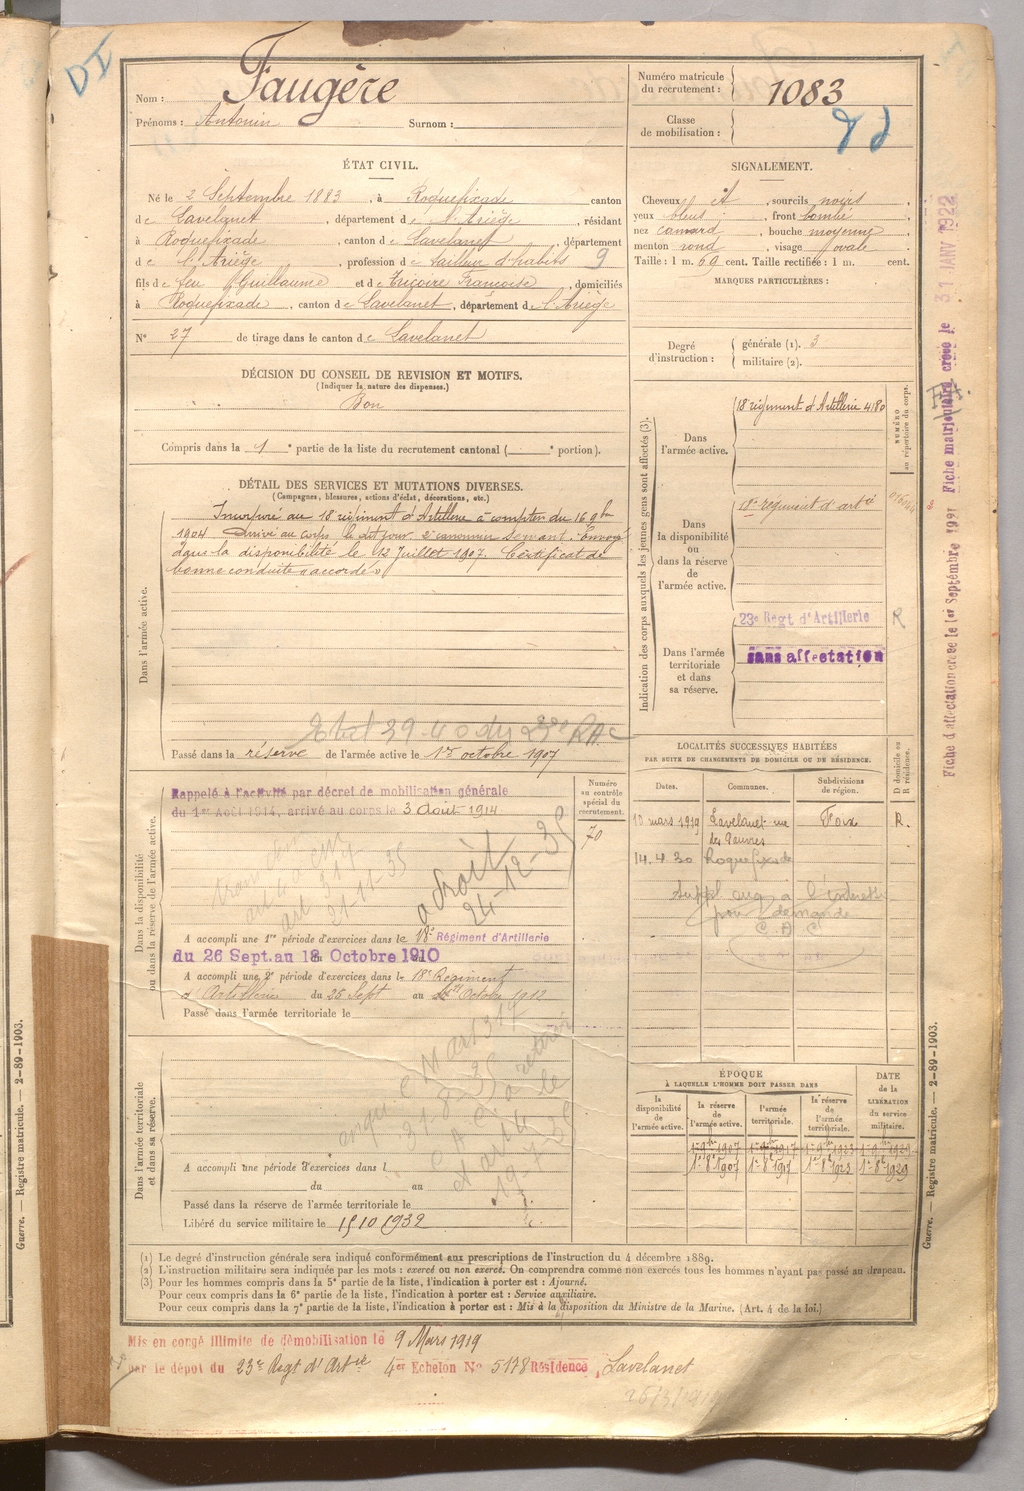 DI
Nom : Faugère
Prénoms : Antonin Surnom :
Numéro matricule
du recrutement : 1083
Classe
de mobilisation :
ÉTAT CIVIL.
Né le 2 Septembre 1883, à Roquefixade canton
de Lavelanet, département de l'Ariège, résidant
à Roquefixade, canton de Lavelanet, département
de l'Ariège, profession de tailleur d'habits 9
fils de feu Guillaume et de Tricoire Françoise, domiciliés
à Roquefixade, canton de Lavelanet, département de l'Ariège
N° 27 de tirage dans le canton de Lavelanet
SIGNALEMENT.
Cheveux et, sourcils noirs,
yeux bleus, front bombé,
nez camard, bouche moyenne,
menton rond, visage ovale.
Taille : 1 m. 69 cent. Taille rectifiée : 1 m. cent.
MARQUES PARTICULIÈRES :
Degré
d'instruction :
générale (1). 3
militaire (2).
DÉCISION DU CONSEIL DE REVISION ET MOTIFS.
(Indiquer la nature des dispenses.)
Bon
Compris dans la 1e partie de la liste du recrutement cantonal ( e portion).
DÉTAIL DES SERVICES ET MUTATIONS DIVERSES.
(Campagnes, blessures, actions d'éclat, décorations, etc.)
Dans l'armée active.
Incorporé au 18e régiment d'Artillerie à compter du 16 9bre
1904 Arrivé au corps le dit jour 2e canonnier servant. Envoyé
dans la disponibilité le 12 Juillet 1907. Certificat de
bonne conduite « accordé »
Passé dans la réserve de l'armée active le 1er octobre 1907
Indication des corps auxquels les jeunes gens sont affectés (3).
NUMÉRO
au répertoire du corps.
Dans
l'armée active.
18e régiment d'Artillerie 4180
Dans
la disponibilité
ou
dans la réserve
de
l'armée active.
18e régiment d'artie
23e Regt d'Artillerie R
Dans l'armée
territoriale
et dans
sa réserve.
sans affectation
Fiche d'affectation créée le 1er Septembre 1921 Fiche matriculaire créée le 31 JANV 1922
Dans la disponibilité
ou dans la réserve de l'armée active.
Rappelé à l'activité par décret de mobilisation générale
du 1er Août 1914, arrivé au corps le 3 Août 1914
Numéro
au contrôle
spécial du
recrutement.
70
a droit
24-12-35
21-11-35
A accompli une 1re période d'exercices dans le 18e Régiment d'Artillerie
du 26 Sept. au 18 Octobre 1910
A accompli une 2e période d'exercices dans le 18e Régiment
d'Artillerie du 26 Sept au Octobre 1912
Passé dans l'armée territoriale le
LOCALITÉS SUCCESSIVES HABITÉES
PAR SUITE DE CHANGEMENTS DE DOMICILE OU DE RÉSIDENCE.
Dates. Communes. Subdivisions
de région. D domicile ou
R résidence.
10 mars 1919 Lavelanet rue Foix R.
des Pauvres
14.4.30 Roquefixade
Dans l'armée territoriale
et dans sa réserve.
A accompli une période d'exercices dans l
du au
Passé dans la réserve de l'armée territoriale le
Libéré du service militaire le 15 10 1932
ÉPOQUE
À LAQUELLE L'HOMME DOIT PASSER DANS
la
disponibilité
de
l'armée active.
la réserve
de
l'armée active.
l'armée
territoriale.
la réserve
de
l'armée
territoriale.
DATE
de la
LIBÉRATION
du service
militaire.
1er 9bre 1907 1er 9bre 1917 1er 9bre 1923 1er 9bre 1929
1er 8bre 1907 1er 8bre 1917 1er 8bre 1923 1er 8bre 1929
(1) Le degré d'instruction générale sera indiqué conformément aux prescriptions de l'instruction du 4 décembre 1889.
(2) L'instruction militaire sera indiquée par les mots : exercé ou non exercé. On comprendra comme non exercés tous les hommes n'ayant pas passé au drapeau.
(3) Pour les hommes compris dans la 5e partie de la liste, l'indication à porter est : Ajourné.
Pour ceux compris dans la 6e partie de la liste, l'indication à porter est : Service auxiliaire.
Pour ceux compris dans la 7e partie de la liste, l'indication à porter est : Mis à la disposition du Ministre de la Marine. (Art. 4 de la loi.)
Mis en congé illimité de démobilisation le 9 Mars 1919
par le dépôt du 23e Regt d'Artie 4er Echelon N° 5178 Résidence, Lavelanet
26/3/1919
Guerre. — Registre matricule. — 2-89-1903.
Guerre. — Registre matricule. — 2-89-1903.